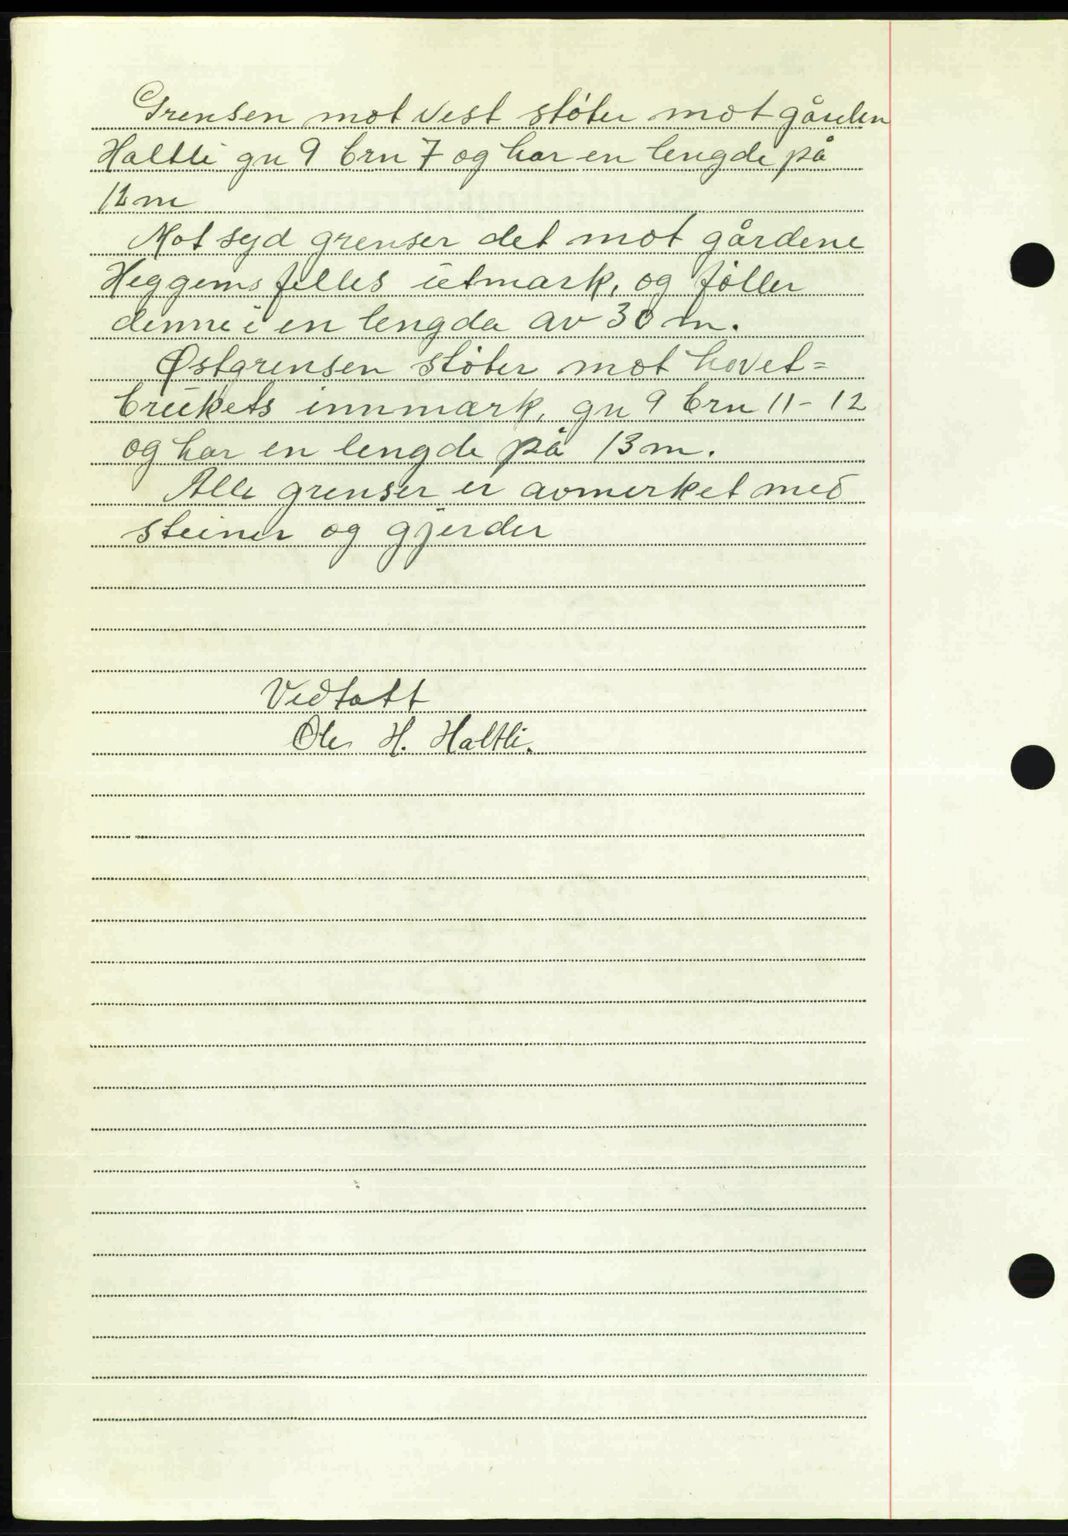 Grensen mot vest støter mot gården
Haltli gn 9 brn 7 og har en lengde på
12 m
Mot syd grenser det mot gårdene
Heggems felles utmark, og føller
denne i en lengda av 30 m.
Østgrensen støter mot hovet=
brukets innmark, gn 9 brn 11-12
og har en lengde på 13 m.
Alle grenser er avmerket med
steiner og gjerder
Vedtatt
Ole H. Haltli.